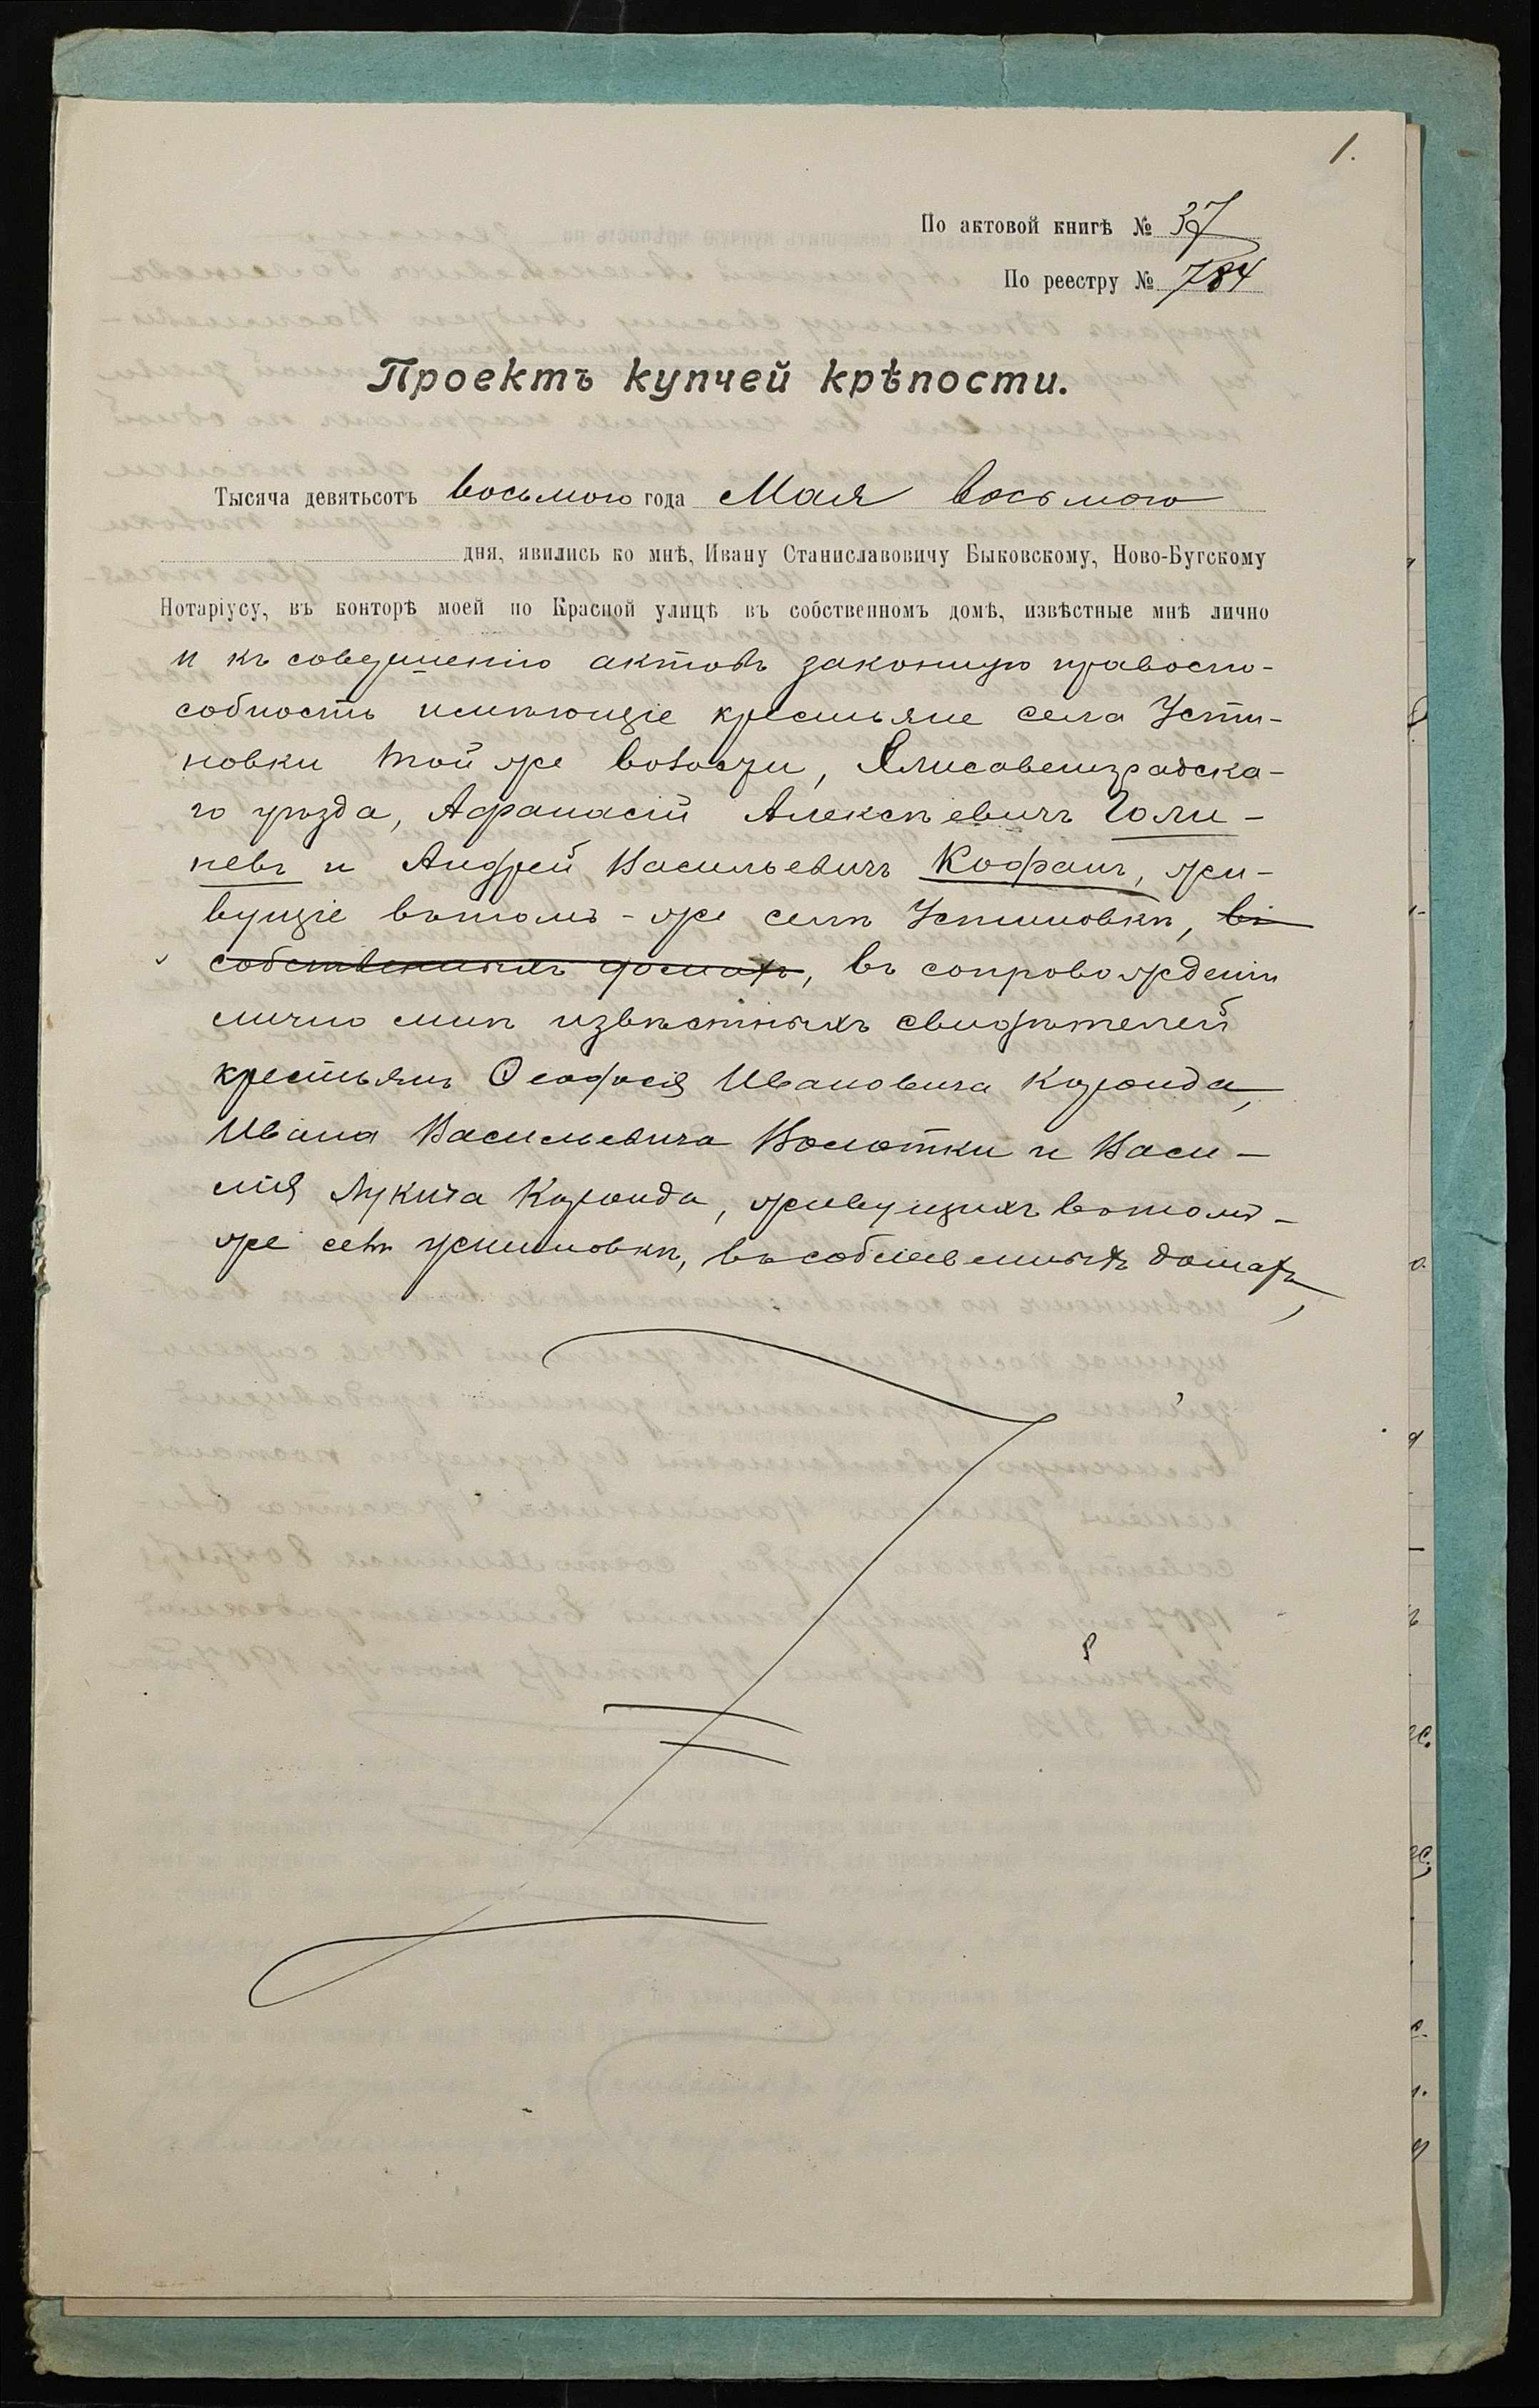 1.
По актовой книгѣ № 37
По реестру № 784
Проектъ купчей крѣпости.
Тысяча девятьсотъ восьмого года Мая восьмого
дня, явились ко мнѣ, Ивану Станиславовичу Быковскому, Ново-Бугскому
Нотаріусу, въ конторѣ моей по Красной улицѣ въ собственномъ домѣ, извѣстные мнѣ лично
и къ совершенію актовъ законную правоспо-
собность имѣющіе крестьяне села Усти-
новки той же волости, Елисаветградска-
го уѣзда, Афанасій Алексѣевичъ Голи-
невъ и Андрей Васильевичъ Кофанъ, жи-
вущіе въ томъ-же селѣ Устиновкѣ, въ
собственныхъ домахъ, въ сопровожденіи
лично мнѣ извѣстныхъ свидѣтелей
крестьянъ Ивановича
Ивана Васильевича и Васи-
лія Лукича живущихъ въ томъ-
же селѣ Устиновкѣ, въ собственныхъ домахъ,